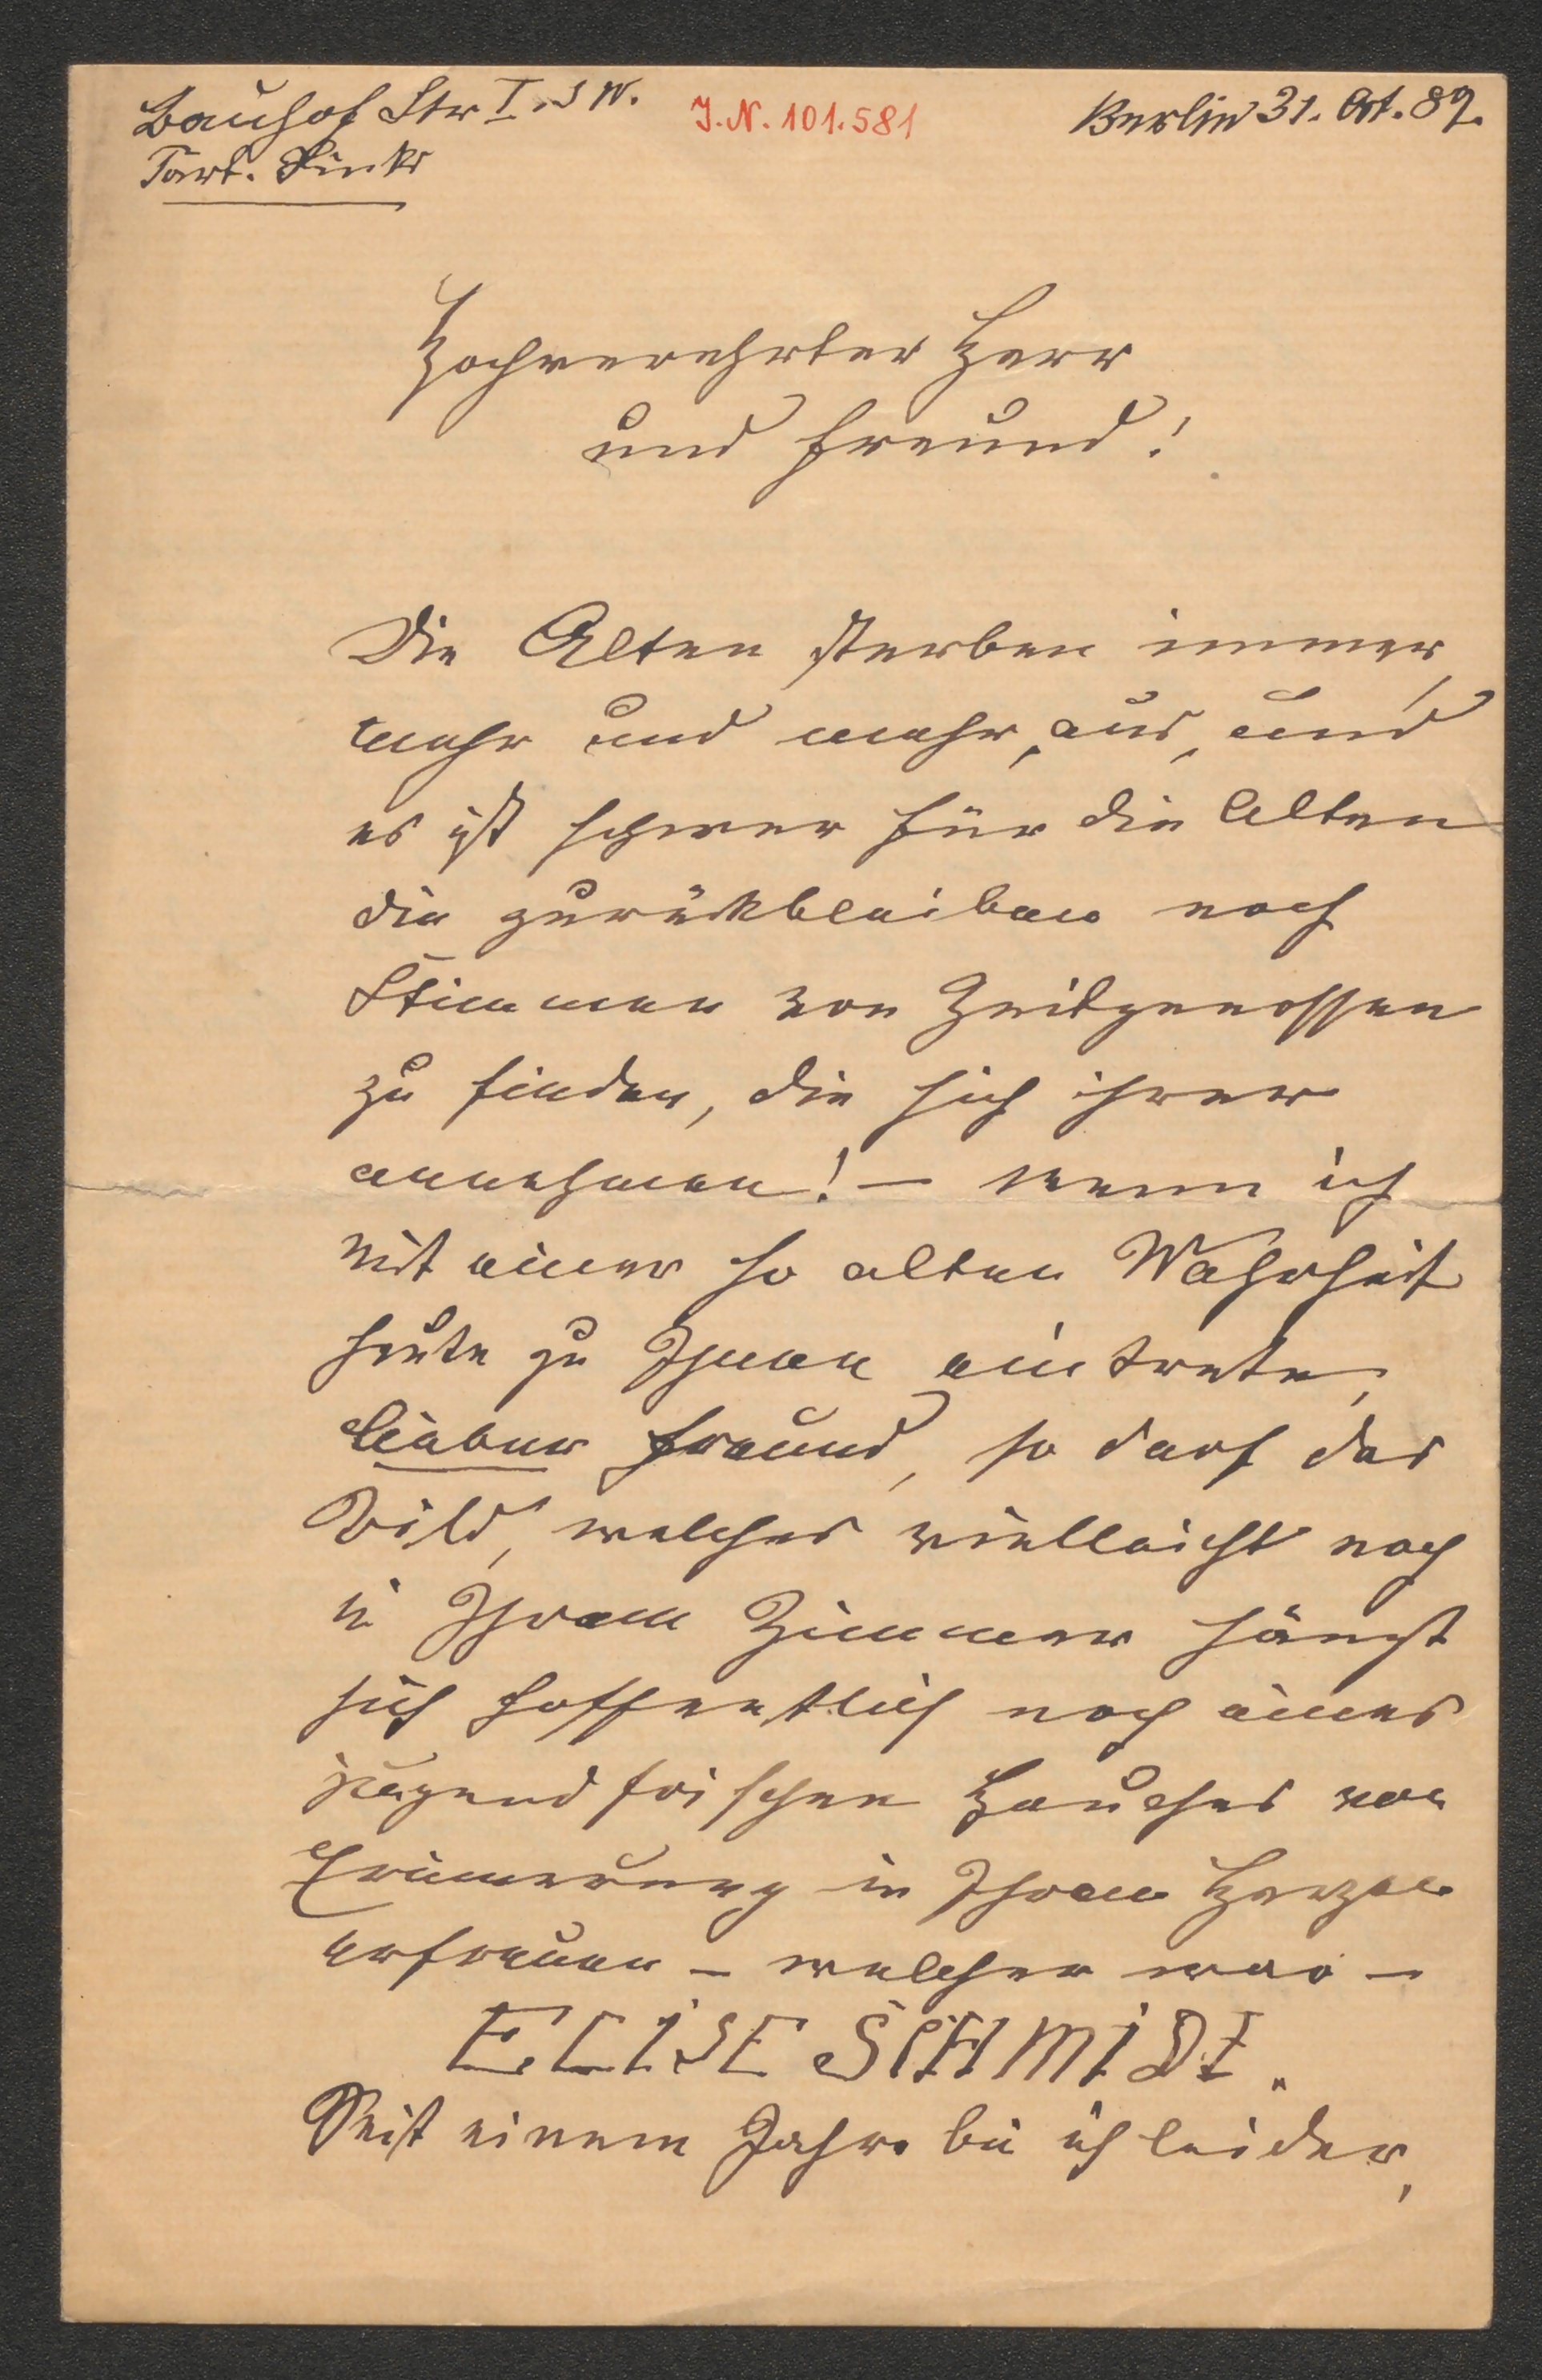 Bauhof Str I. S W.
J.N. 101.581
Berlin 31. Oct. 89.
Part. Links
Hochverehrter Herr
und Freund!
Die Alten sterben immer
mehr und mehr, aus, und
es ist schwer für die Alten
die zurückbleiben noch
Stimmen von Zeitgenossen
zu finden, die sich ihrer
annehmen! — wenn ich
mit einer so alten Wahrheit
heute zu Ihnen eintrete,
lieber Freund, so darf das
Bild, welches vielleicht noch
in Ihrem Zimmer hängt
sich hoffentlich noch eines
jugendfrischen Hauches von
Erinnerung in Ihrem Herzen
erfreuen — welcher war —
ELISE SCHMIDT.
Seit einem Jahre bin ich leider,